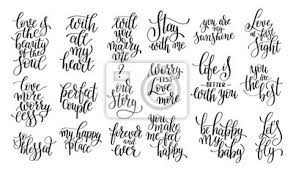 love is
the
beauty of the
soul
with
all
my
heart
will
you
marry
me
?
Stay
with me
you are my
sunshine
Love
at first
Sight
love
more
worry
less
perfect
couple
our
Story
worry
less
Love
more
life is
BETTER
with you
you
are the
best
so
blessed
my happy
place
forever
and
ever
you
make me
feel so
happy
be happy
my
baby
let's
fly